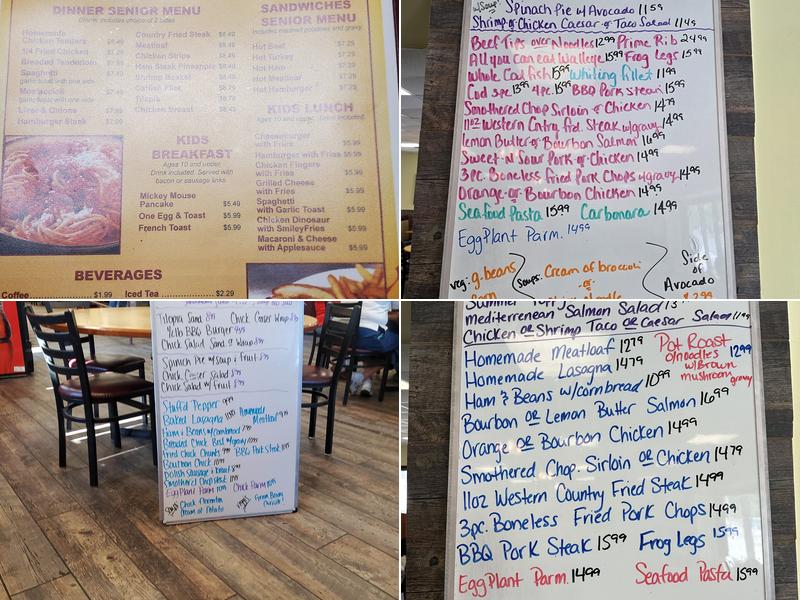 DINNER SENIOR MENU
Dinner includes choice of 2 sides
Homemade
Chicken Tenders $8.49
1/4 Fried Chicken
Breaded Tenderloin
Spaghetti
garlic toast with one side
Mostaccioli
garlic toast with one side
Liver & Onions
Hamburger Steak
Country Fried Steak $8.49
Meatloaf $8.49
Chicken Strips $8.49
Ham Steak Pineapple
Shrimp Basket
Catfish Fillet
Tilapia
Chicken Breast
SANDWICHES
SENIOR MENU
includes mashed potatoes and gravy
Hot Beef $7.29
Hot Turkey $7.29
Hot Ham $7.29
Hot Meatloaf $7.29
Hot Hamburger $7.29
KIDS
BREAKFAST
Ages 10 and under.
Drink included. Served with
bacon or sausage links.
Mickey Mouse
Pancake $5.49
One Egg & Toast $5.99
French Toast $5.99
KIDS LUNCH
Ages 10 and under. Drink included.
Cheeseburger
with Fries $5.99
Hamburger with Fries $5.99
Chicken Fingers
with Fries $5.99
Grilled Cheese
with Fries $5.99
Spaghetti
with Garlic Toast $5.99
Chicken Dinosaur
with SmileyFries $5.99
Macaroni & Cheese
with Applesauce $5.99
BEVERAGES
Coffee $1.99 Iced Tea $2.29
w/Soup!
Spinach Pie w/ Avocado 11.59
Shrimp or Chicken Caesar or Taco Salad 11.49
Beef Tips over Noodles 12.99 Prime Rib 24.99
All you can eat Walleye 15.99 Frog Legs 15.99
Whole Cat fish 15.99 Whiting fillet 11.99
Cod 3pc 13.99 4pc. 15.99 BBQ Pork Steak 15.99
Smothered Chop Sirloin or Chicken 14.79
11oz Western Cntry frd. Steak w/gravy 14.99
lemon Butter or Bourbon Salmon 16.99
Sweet n Sour Pork or Chicken 14.99
3pc. Boneless Fried Pork Chops w/gravy 14.99
Orange or Bourbon Chicken 14.99
Seafood Pasta 15.99 Carbonara 14.99
EggPlant Parm. 14.99
veg: g.beans
Corn
Soups: Cream of broccoli
or
Noodle
Side
of
Avocado
$2.99
Tilapia Sand 8.99 Chick Caeser Wrap
1/2 lb BBQ Burger
Chick Salad Sand or Wrap
Spinach Pie w/ soup & fruit
Chick Caeser Salad
Chick Salad w/ fruit
Stuff'd Pepper
Baked Lasagna Homemade Meatloaf
Ham & Beans w/Cornbread
Breaded Chick Brst w/gravy
fried Chick Chunks BBQ Pork Steak
Bourbon Chick
polish sausage & kraut
Smothered Chop steak
EggPlant Parm Chick Parm
Soup Chick Florentine
Cream of Potato
Green Beans
mediterrenean Salmon Salad
Chicken or Shrimp Taco or Caesar Salad 11.49
Homemade Meatloaf 12.79
Homemade Lasagna 14.79
Ham & Beans w/cornbread 10.99
Pot Roast
o/noodles 12.99
w/ Brown
mushroom gravy
Bourbon or Lemon Butter Salmon 16.99
Orange or Bourbon Chicken 14.99
Smothered Chop. Sirloin or Chicken 14.79
11oz Western Country Fried Steak 14.99
3pc. Boneless Fried Pork Chops 14.99
BBQ Pork Steak 15.99 Frog Legs 15.99
EggPlant Parm. 14.99 Seafood Pasta 15.99